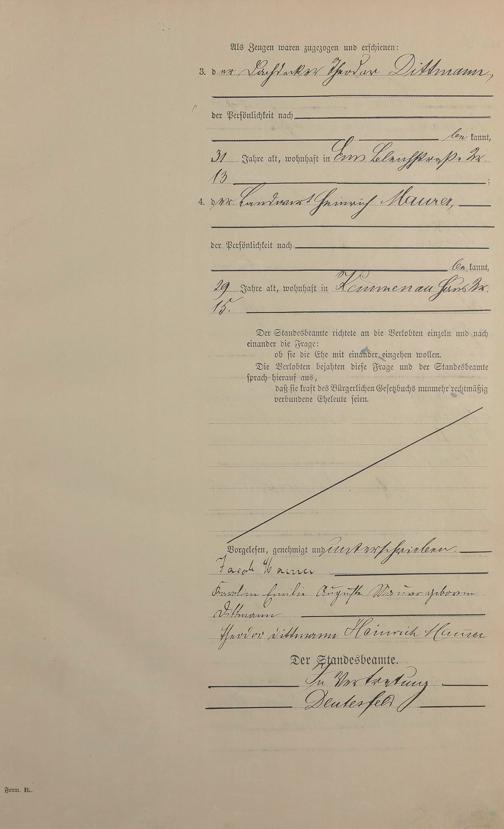 Als Zeugen waren zugezogen und erschienen:
3. der Dachdecker Theodor Dittmann,
der Persönlichkeit nach
bekannt,
31 Jahre alt, wohnhaft in Ems Bleichstraße Nr.
13;
4. der Landwirt Heinrich Maurer,
der Persönlichkeit nach
bekannt,
29 Jahre alt, wohnhaft in Kemmenau Haus Nr.
15.
Der Standesbeamte richtete an die Verlobten einzeln und nach
einander die Frage:
ob sie die Ehe mit einander eingehen wollen.
Die Verlobten bejahten diese Frage und der Standesbeamte
sprach hierauf aus,
daß sie kraft des Bürgerlichen Gesetzbuchs nunmehr rechtmäßig
verbundene Eheleute seien.
Vorgelesen, genehmigt und unterschrieben
Jacob
Emilie Auguste geborene
Dittmann
Theodor Dittmann Heinrich Maurer
Der Standesbeamte.
In Vertretung
Form. B.